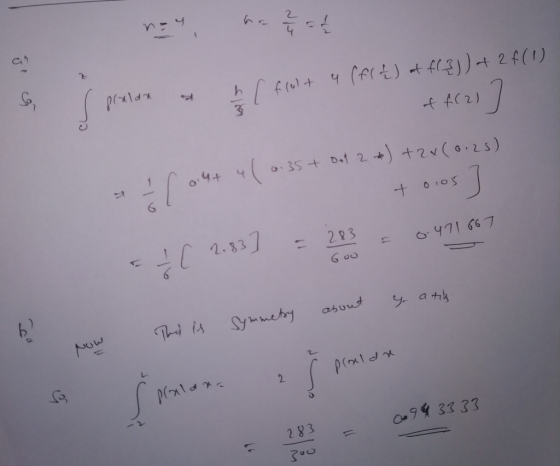 n = 4, h = 2/4 = 1/2
a)
So, ∫₀² p(x)dx ⇒ h/3 [ f(0) + 4 (f(1/2) + f(3/2)) + 2f(1)
+ f(2) ]
⇒ 1/6 [ 0.4 + 4 ( 0.35 + 0.12 ) + 2×(0.25)
+ 0.05 ]
= 1/6 [ 2.83 ] = 283/600 = 0.471667
b)
Now This is symmetry about y axis
So, ∫₋₂² p(x)dx = 2 ∫₀² p(x)dx
= 283/300 = 0.943333